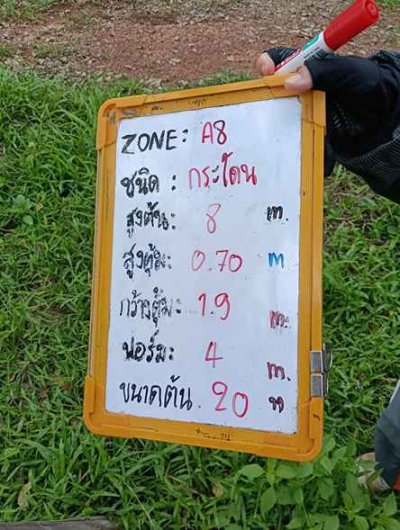 ZONE: A8
ชนิด : กระโดน
สูงต้น: 8 m.
สูงตุ้ม: 0.70 m
กว้างตุ้ม: 1.9 m.
ฟอร์ม: 4 m.
ขนาดต้น 20